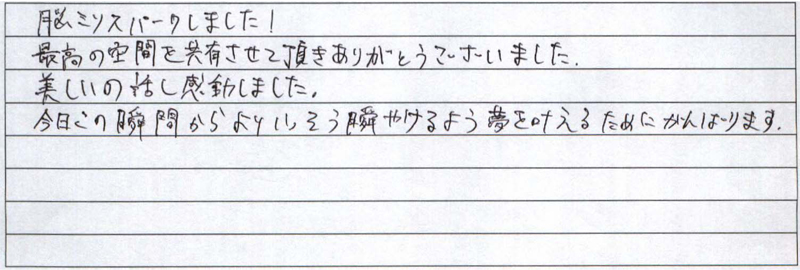 脳ミソスパークしました!
最高の空間を共有させて頂きありがとうございました.
美しいの話し感動しました.
今日この瞬間からよりいっそう瞬やけるよう夢を叶えるためにがんばります.